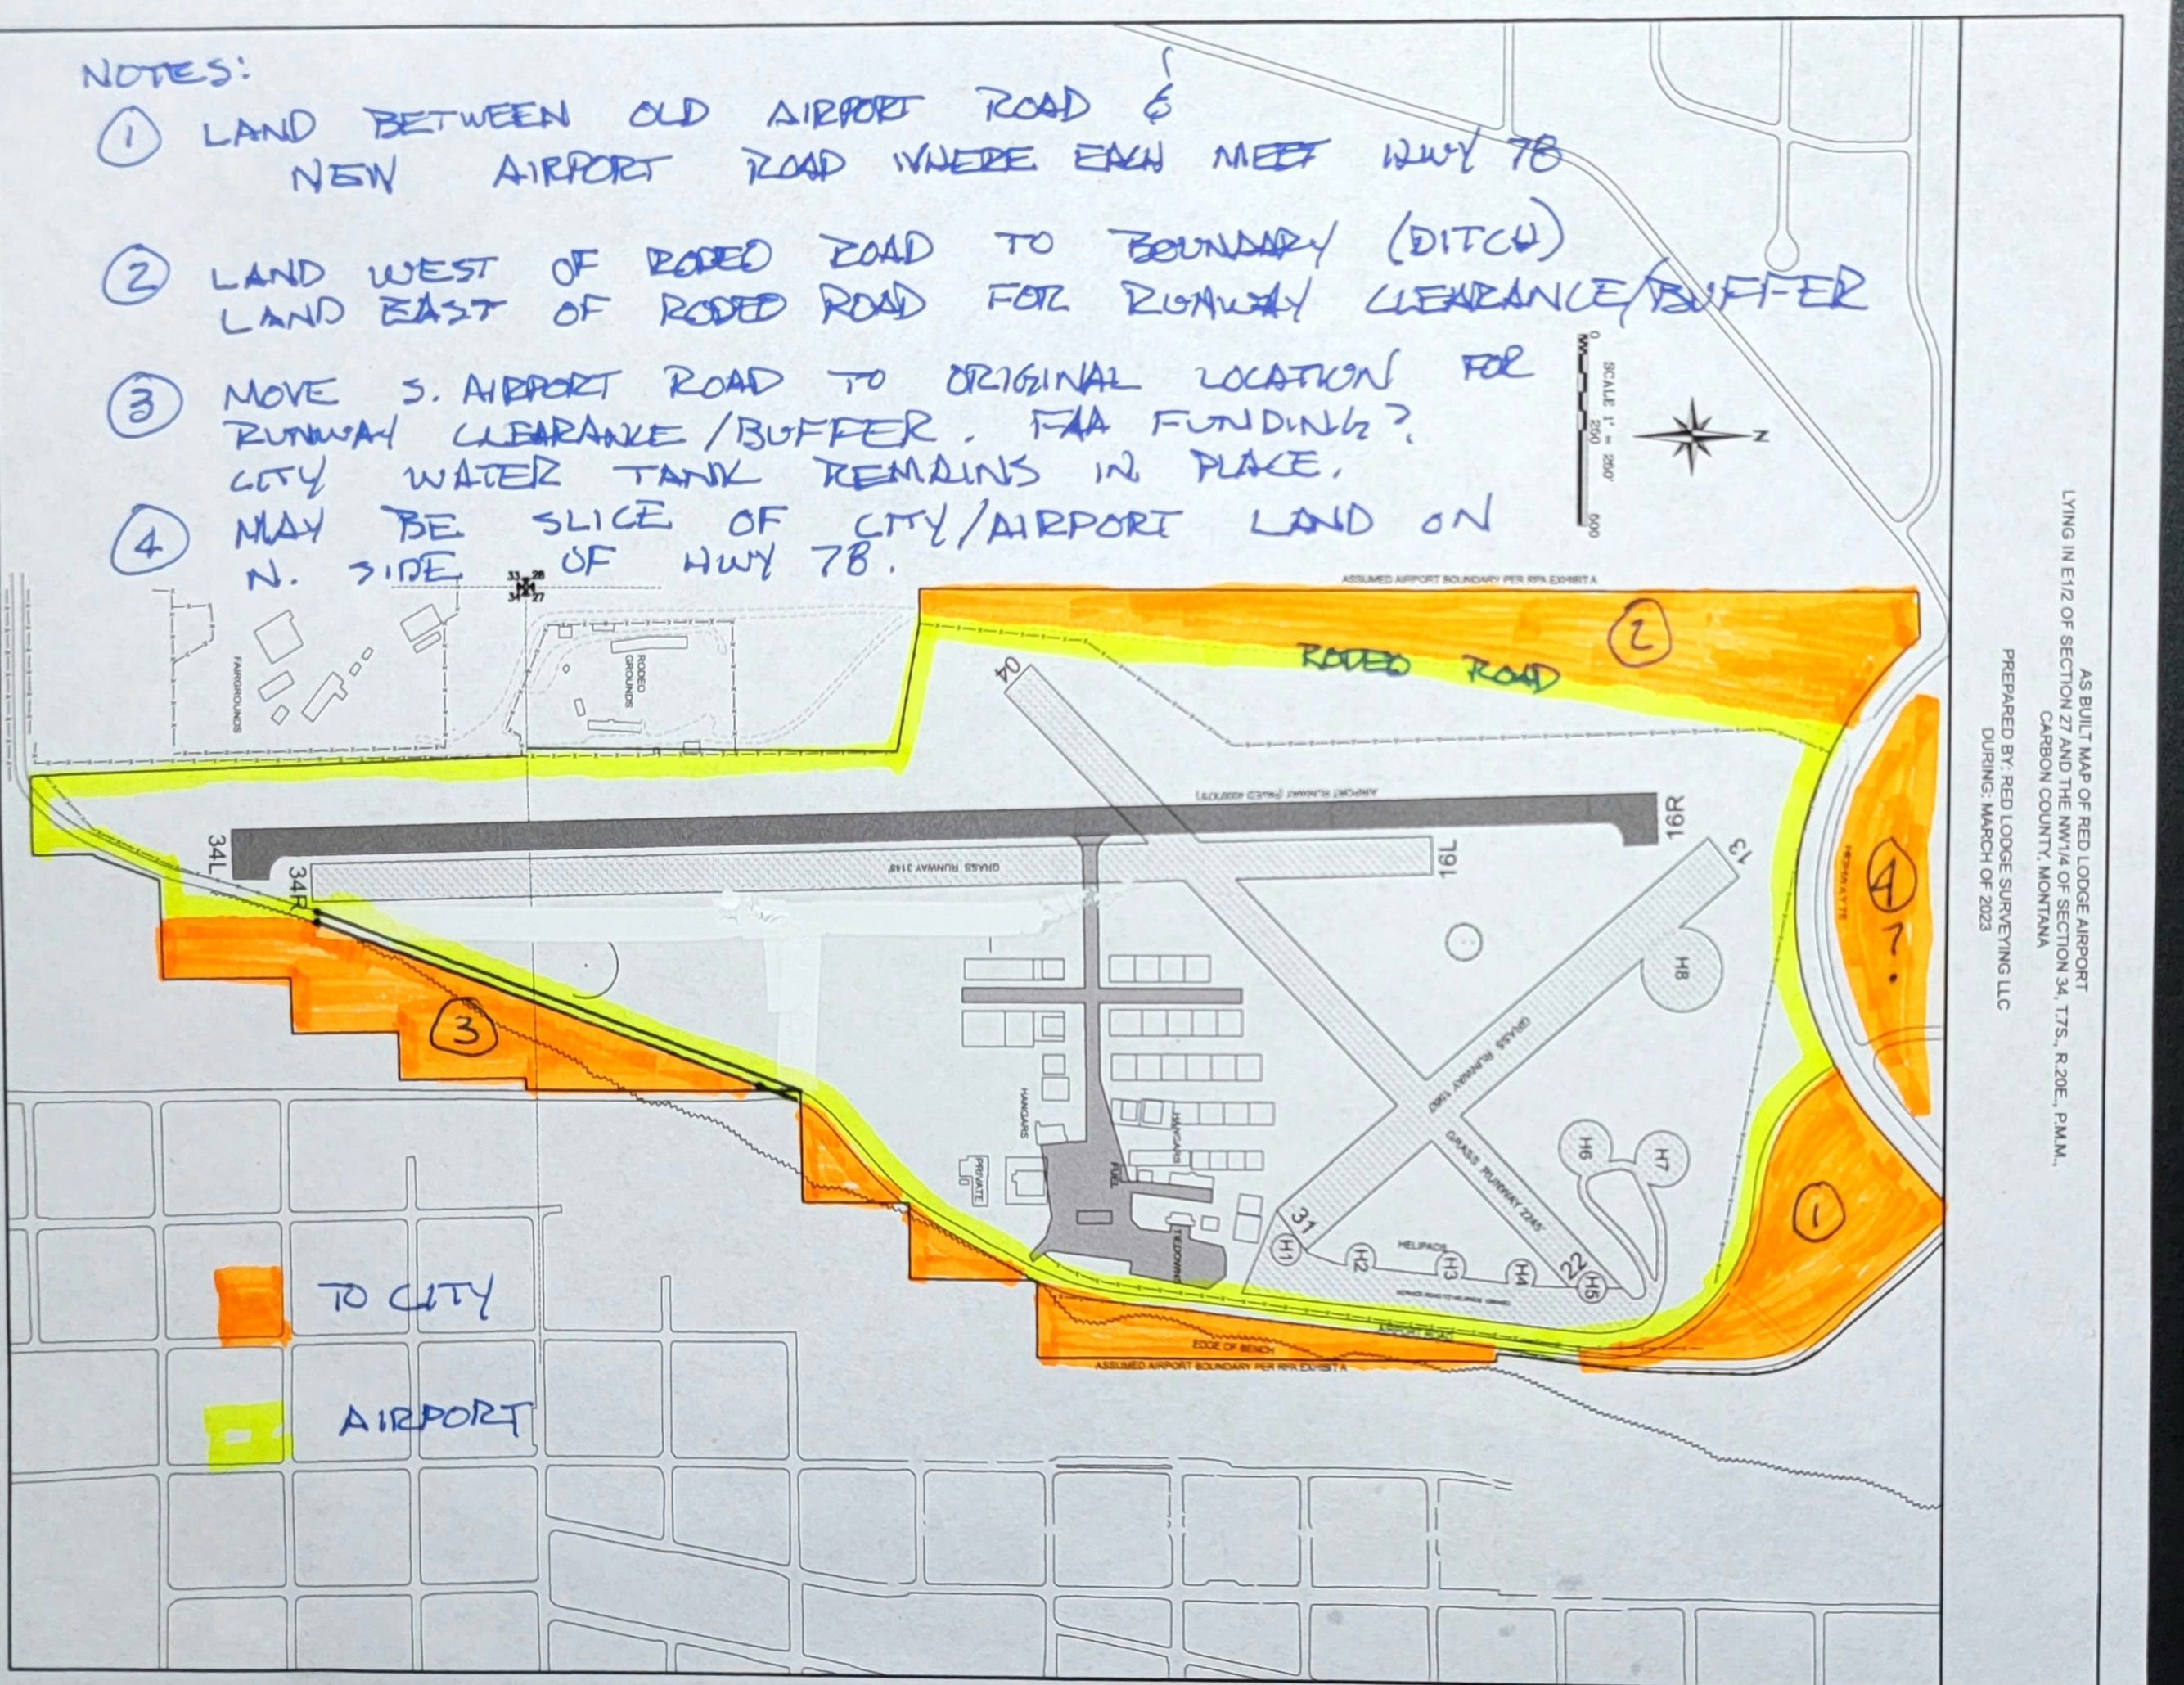 NOTES:
① LAND BETWEEN OLD AIRPORT ROAD &
NEW AIRPORT ROAD WHERE EACH MEET HWY 78
② LAND WEST OF RODEO ROAD TO BOUNDARY (DITCH)
LAND EAST OF RODEO ROAD FOR RUNWAY CLEARANCE/BUFFER
③ MOVE S. AIRPORT ROAD TO ORIGINAL LOCATION FOR
RUNWAY CLEARANCE/BUFFER. FAA FUNDING?
CITY WATER TANK REMAINS IN PLACE.
④ MAY BE SLICE OF CITY/AIRPORT LAND ON
N. SIDE OF HWY 78.
0 250 500
SCALE 1" = 250'
N
AS BUILT MAP OF RED LODGE AIRPORT
LYING IN E1/2 OF SECTION 27 AND THE NW1/4 OF SECTION 34, T.7S., R.20E., P.M.M.,
CARBON COUNTY, MONTANA
PREPARED BY: RED LODGE SURVEYING LLC
DURING: MARCH OF 2023
33 28
34 27
ASSUMED AIRPORT BOUNDARY PER RPA EXHIBIT A
②
RODEO ROAD
FAIRGROUNDS
RODEO
GROUNDS
04
16R
34L
34R
GRASS RUNWAY 3148'
16L
13
HIGHWAY 78
④ ?
H8
③
GRASS RUNWAY
GRASS RUNWAY 2245'
HANGARS
HANGARS
PRIVATE
FUEL
TIEDOWNS
H6
H7
①
31
H1
H2
HELIPADS
H3
H4
22
H5
AIRPORT ROAD
EDGE OF BENCH
ASSUMED AIRPORT BOUNDARY PER RPA EXHIBIT A
TO CITY
AIRPORT